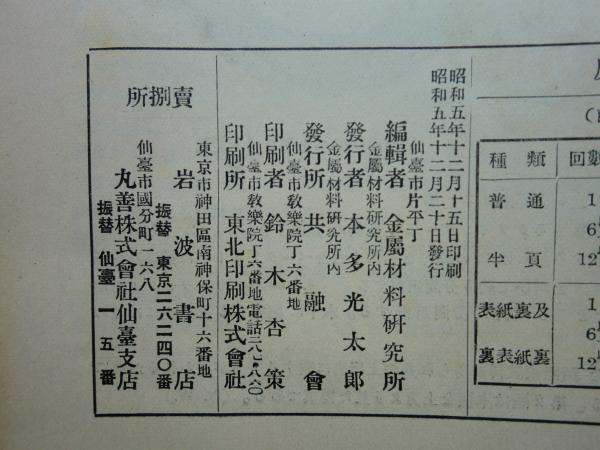 昭和五年十二月十五日印刷
昭和五年十二月二十日發行
仙臺市片平丁
編輯者 金屬材料硏究所
金屬材料硏究所內
發行者 本多光太郎
金屬材料硏究所內
發行所 共融會
仙臺市敎樂院丁六番地
印刷者 鈴木杏策
仙臺市敎樂院丁六番地電話二八七・八八〇
印刷所 東北印刷株式會社
賣捌所
東京市神田區南神保町十六番地
岩波書店
振替 東京二六二四〇番
仙臺市國分町一六八
丸善株式會社仙臺支店
振替 仙臺 一五番
種類 回數
普通 1
6
半頁 12
表紙裏及 1
6
裏表紙裏 12